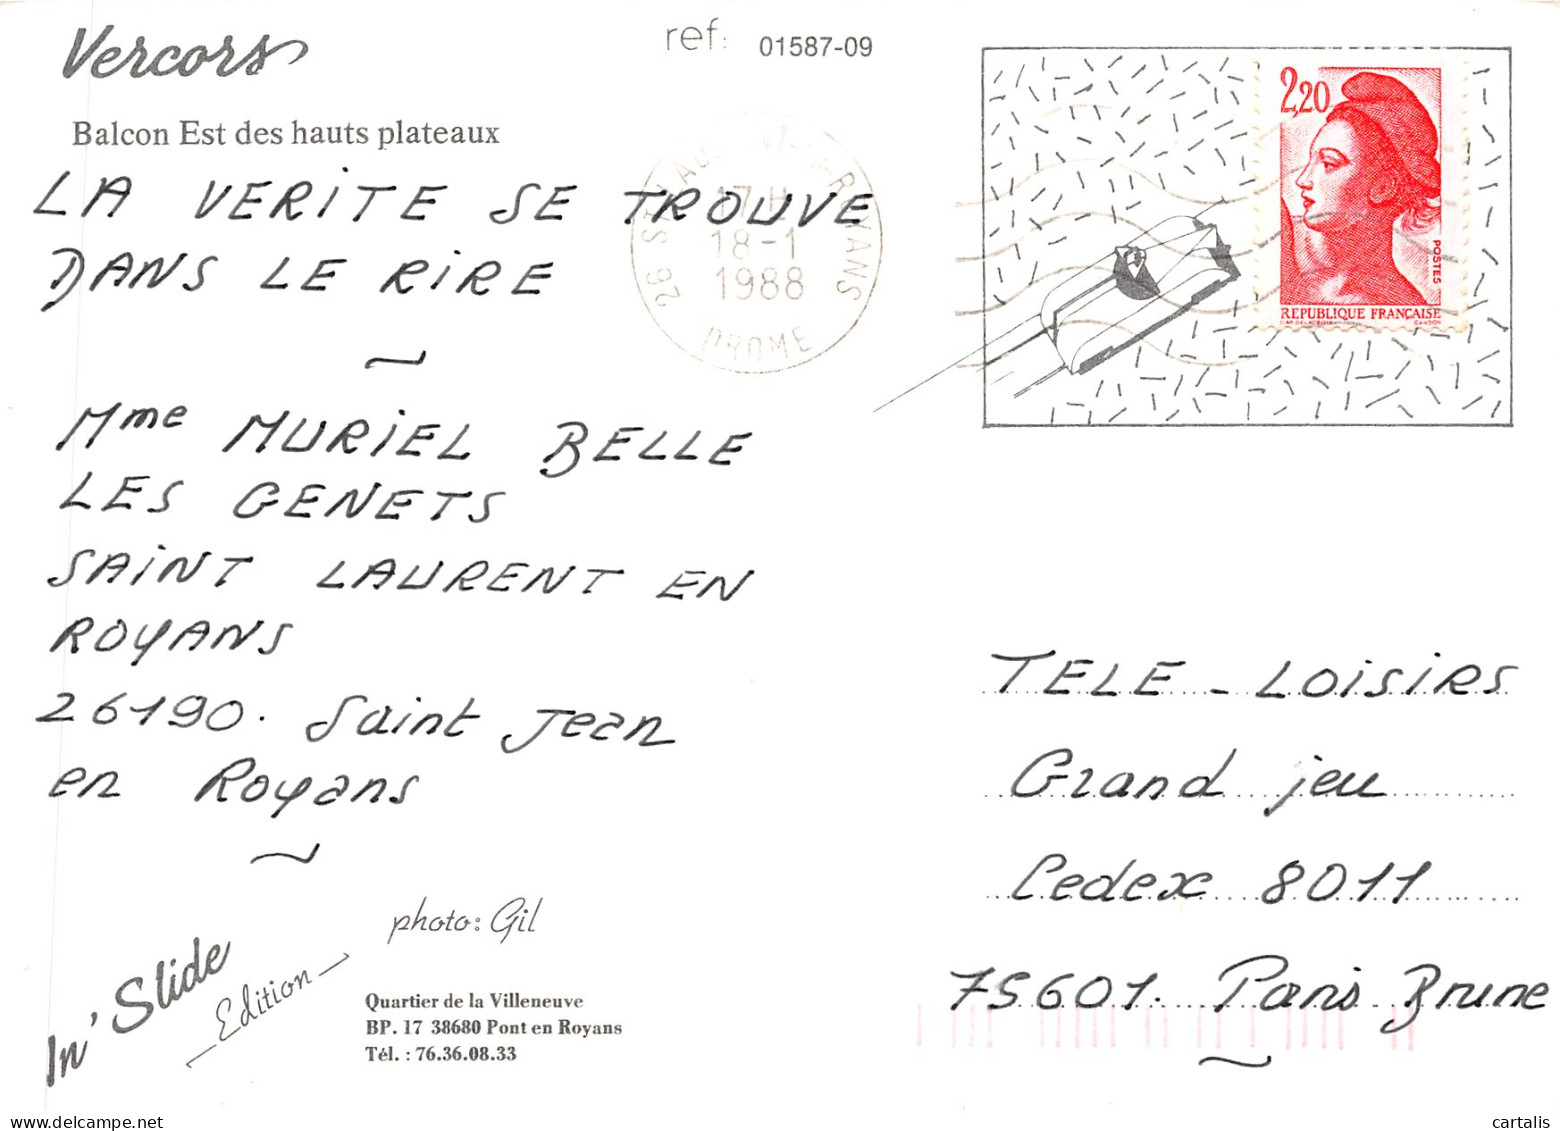 Vercors
ref: 01587-09
Balcon Est des hauts plateaux
LA VERITE SE TROUVE
DANS LE RIRE
Mme MURIEL BELLE
LES GENETS
SAINT LAURENT EN
ROYANS
26190. Saint Jean
en Royans
photo: Gil
In' Slide
Edition
Quartier de la Villeneuve
BP. 17 38680 Pont en Royans
Tél. : 76.36.08.33
18-1
1988
DROME
2,20
POSTES
REPUBLIQUE FRANÇAISE
TELE - LOISIRS
Grand jeu
Cedex 8011
75601. Paris Brune
cartalis